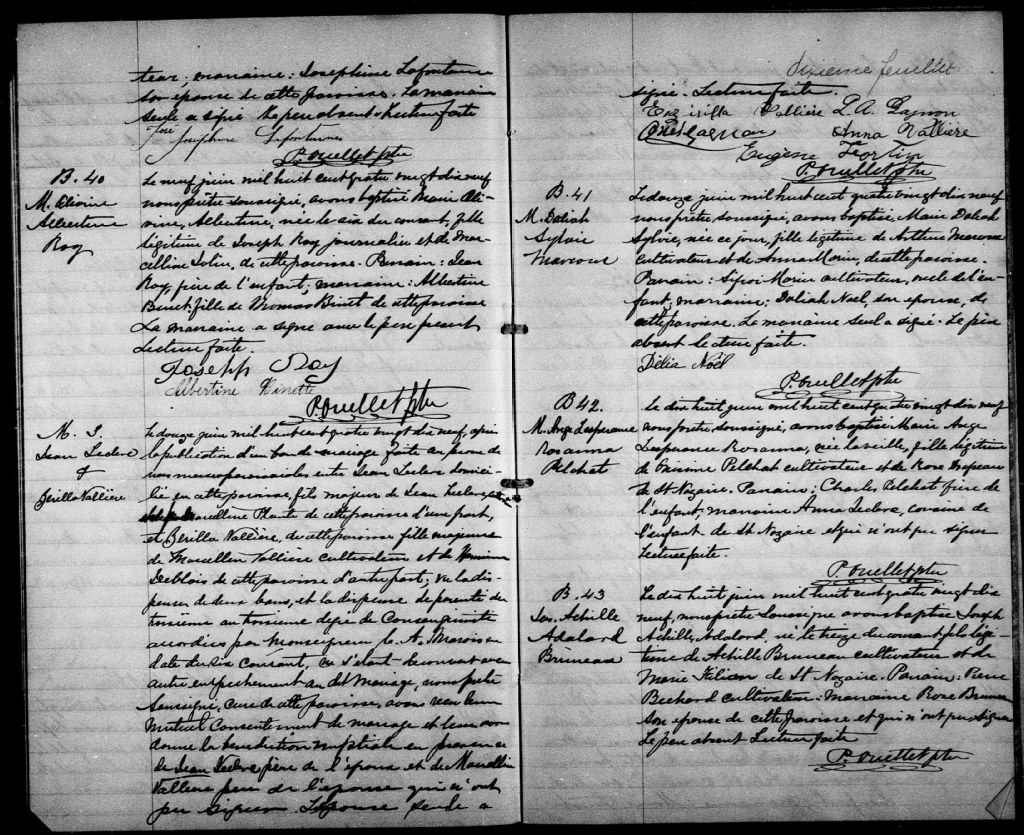 teur; marraine: Josephine Lafontaine
son épouse de cette paroisse. La marraine
seule a signé. Le père absent. Lecture faite
Josephine Lafontaine
P. Ouellet ptre
B. 40
M. Alvine
Albertine
Roy
Le neuf juin mil huit cent quatre vingt dix neuf
nous prêtre soussigné, avons baptisé Marie Al
vine, Albertine, née le six du courant, fille
légitime de Joseph Roy journalier et de Mar
celline de cette paroisse. Parrain: Jean
Roy, frère de l'enfant; marraine: Albertine
Binet fille de Thomas Binet de cette paroisse
La marraine a signé avec le père présent
Lecture faite.
Joseph Roy
Albertine Binette
P. Ouellet ptre
M. 3.
Jean Leclerc
&
Bérilla Vallière
Le douze juin mil huit cent quatre vingt dix neuf, après
la publication d'un ban de mariage faite au prône de
nos messes paroissiales entre Jean Leclerc domici
lié en cette paroisse, fils majeur de Jean Leclerc et
de Marcelline Plante de cette paroisse d'une part,
et Bérilla Vallière, de cette paroisse fille majeure
de Marcellin Vallière cultivateur et de
Deblois de cette paroisse d'autre part; vu la dis-
pense de deux bans, et la dispense de parenté du
troisième au troisième degré de Consanguinité
accordées par Monseigneur C. A. Marois en
date du six courant, ne s'étant découvert aucun
autre empêchement au dit Mariage, nous prêtre
Soussigné, curé de cette paroisse, avons reçu leur
mutuel Consentement de mariage et leur avons
donné la bénédiction nuptiale en présence
de Jean Leclerc père de l'époux et de Marcellin
Vallière père de l'épouse qui n'ont
pu signer. L'épouse seule a
Sixième feuillet
signé. Lecture faite.
Vallière L. A. Gagnon
Gagnon Anna Vallière
Eugène Fortin
P. Ouellet ptre
B. 41
M. Daliah
Sylvie
Marcoux
Le douze juin mil huit cent quatre vingt dix neuf
nous prêtre soussigné, avons baptisé, Marie Daliah
Sylvie, née ce jour, fille légitime de Arthur Marcoux
cultivateur et de Anna Morin, de cette paroisse.
Parrain: Morin cultivateur, oncle de l'en-
fant; marraine: Daliah Noël, son épouse, de
cette paroisse. La marraine seul a signé. Le père
absent lecture faite.
Délia Noël
P. Ouellet ptre
B 42.
M. Ange Lesperance
Rosanna
Pelchat
Le dix huit juin mil huit cent quatre vingt dix neuf
nous prêtre soussigné, avons baptisé Marie Ange
Lesperance Rosanna, née la veille, fille légitime
de Pelchat cultivateur et de Rose
de St Nazaire. Parrain: Charles Pelchat frère de
l'enfant, marraine Anna Leclerc, cousine de
l'enfant de St Nazaire et qui n'ont pu signer
Lecture faite.
P. Ouellet ptre
B. 43
Jos. Achille
Adalard
Bruneau
Le dix huit juin mil huit cent quatre vingt dix
neuf, nous prêtre Soussigné avons baptisé Joseph
Achille, Adalard, né le treize du courant fils légi-
time de Achille Bruneau cultivateur et de
Marie de St Nazaire. Parrain: Pierre
Bechard cultivateur: Marraine Rose Bruneau
son épouse de cette paroisse et qui n'ont pu signer
Le père absent Lecture faite
P. Ouellet ptre